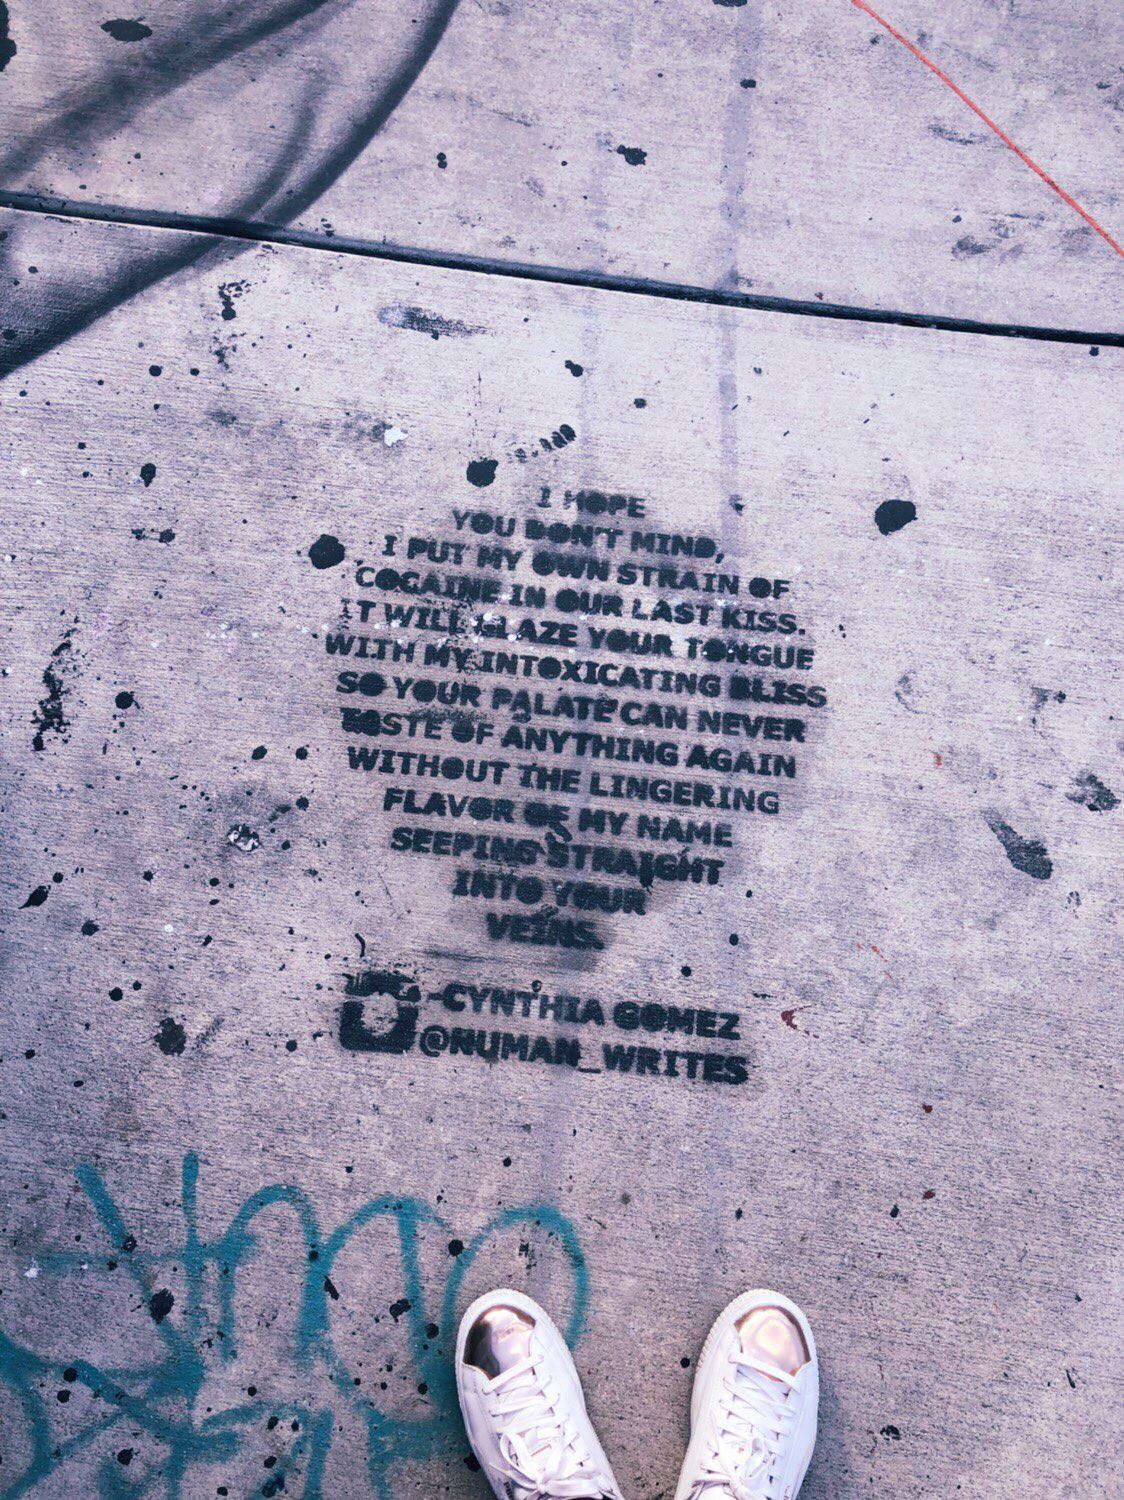 I HOPE
YOU DON'T MIND,
I PUT MY OWN STRAIN OF
COCAINE IN OUR LAST KISS.
IT WILL GLAZE YOUR TONGUE
WITH MY INTOXICATING BLISS
SO YOUR PALATE CAN NEVER
TASTE OF ANYTHING AGAIN
WITHOUT THE LINGERING
FLAVOR OF MY NAME
SEEPING STRAIGHT
INTO YOUR
VEINS.
-CYNTHIA GOMEZ
@NUMAN_WRITES